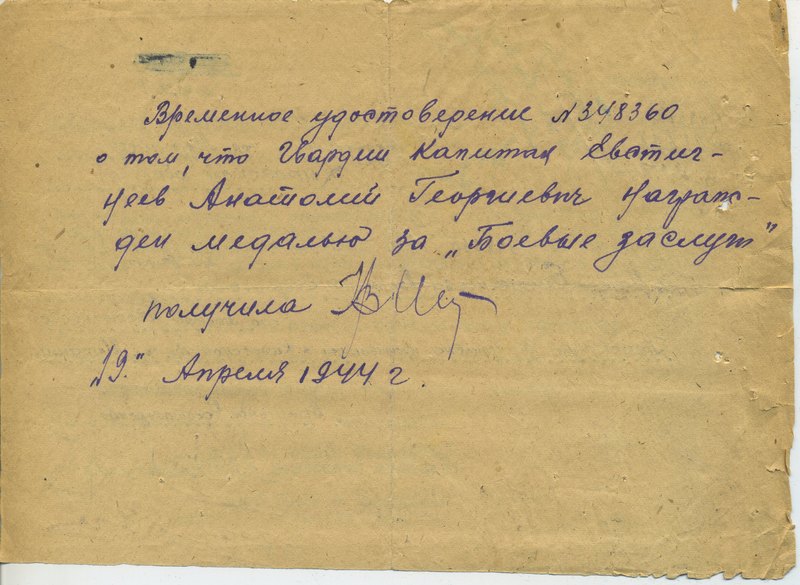 Временное удостоверение N348360
о том, что Гвардии Капитан Евстиг-
неев Анатолий Георгиевич награж-
ден медалью за „Боевые заслуги"
получила
„19." Апреля 1944 г.